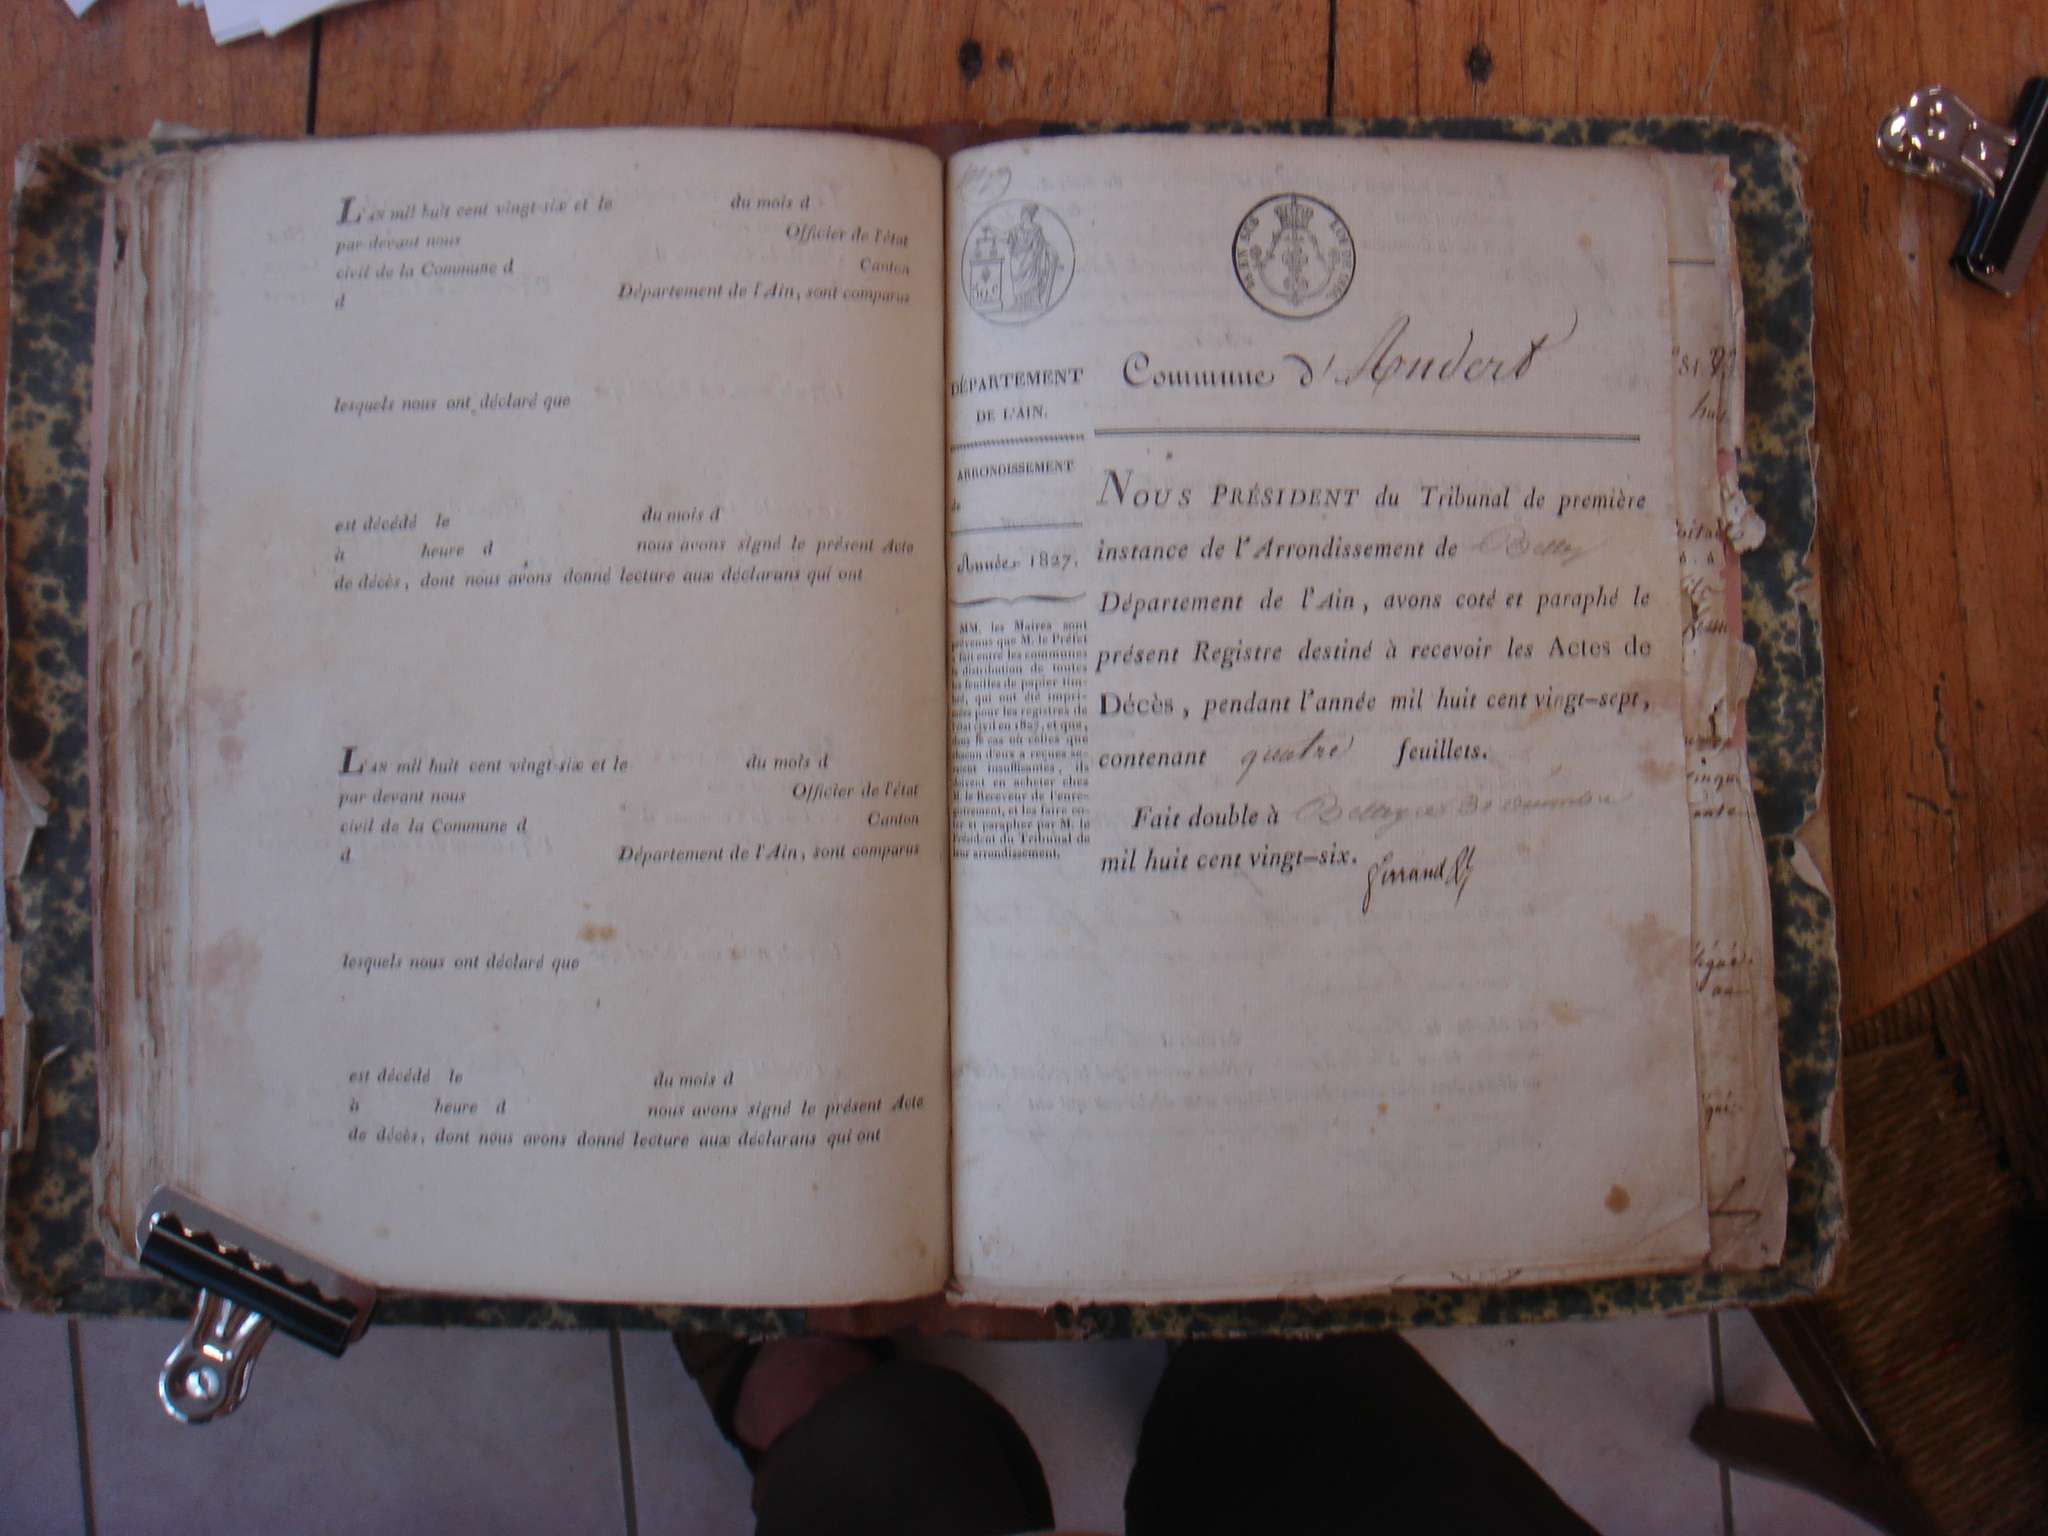 L'AN mil huit cent vingt-six et le du mois d
par-devant nous Officier de l'état
civil de la Commune d Canton
d Département de l'Ain, sont comparus
lesquels nous ont déclaré que
est décédé le du mois d
à heure d nous avons signé le présent Acte
de décès, dont nous avons donné lecture aux déclarans qui ont
L'AN mil huit cent vingt-six et le du mois d
par devant nous Officier de l'état
civil de la Commune d Canton
d Département de l'Ain, sont comparus
lesquels nous ont déclaré que
est décédé le du mois d
à heure d nous avons signé le présent Acte
de décès, dont nous avons donné lecture aux déclarans qui ont
DÉPARTEMENT
DE L'AIN.
ARRONDISSEMENT
de
Année 1827.
MM. les Maires sont
prévenus que M. le Préfet
a fait entre les communes
la distribution de toutes
les feuilles de papier tim-
bré, qui ont été impri-
mées pour les registres de
l'état civil en 1827, et que,
dans le cas où celles que
chacun d'eux a reçues se-
raient insuffisantes, ils
doivent en acheter chez
M. le Receveur de l'enre-
gistrement, et les faire co-
ter et parapher par M. le
Président du Tribunal de
leur arrondissement.
Commune d'Andert
NOUS PRÉSIDENT du Tribunal de première
instance de l'Arrondissement de Belley
Département de l'Ain, avons coté et paraphé le
présent Registre destiné à recevoir les Actes de
Décès, pendant l'année mil huit cent vingt-sept,
contenant quatre feuillets.
Fait double à Belley
mil huit cent vingt-six.